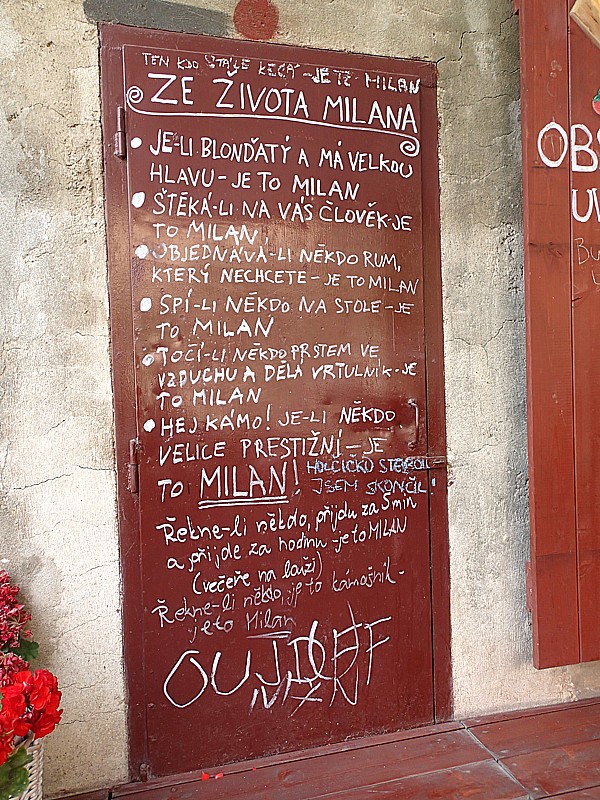 TEN KDO STÁLE KECÁ - JE TE - MILAN
ZE ŽIVOTA MILANA
JE-LI BLONĎATÝ A MÁ VELKOU
HLAVU - JE TO MILAN
ŠTĚKÁ-LI NA VÁS ČLOVĚK-JE
TO MILAN
OBJEDNÁVÁ-LI NĚKDO RUM,
KTERÝ NECHCETE - JE TO MILAN
SPÍ-LI NĚKDO NA STOLE - JE
TO MILAN
TOČÍ-LI NĚKDO PRSTEM VE
VZDUCHU A DĚLÁ VRTULNÍK - JE
TO MILAN
HEJ KÁMO! JE-LI NĚKDO
VELICE PRESTIŽNÍ - JE
TO MILAN!
HOLČIČKO
JSEM SKONČIL!
Řekne-li někdo, přijdu za 5 min
a přijde za hodinu - je to MILAN
(večeře na lodži)
Řekne-li někdo, je to kámošník -
je to Milan
OUJDEF
OBS